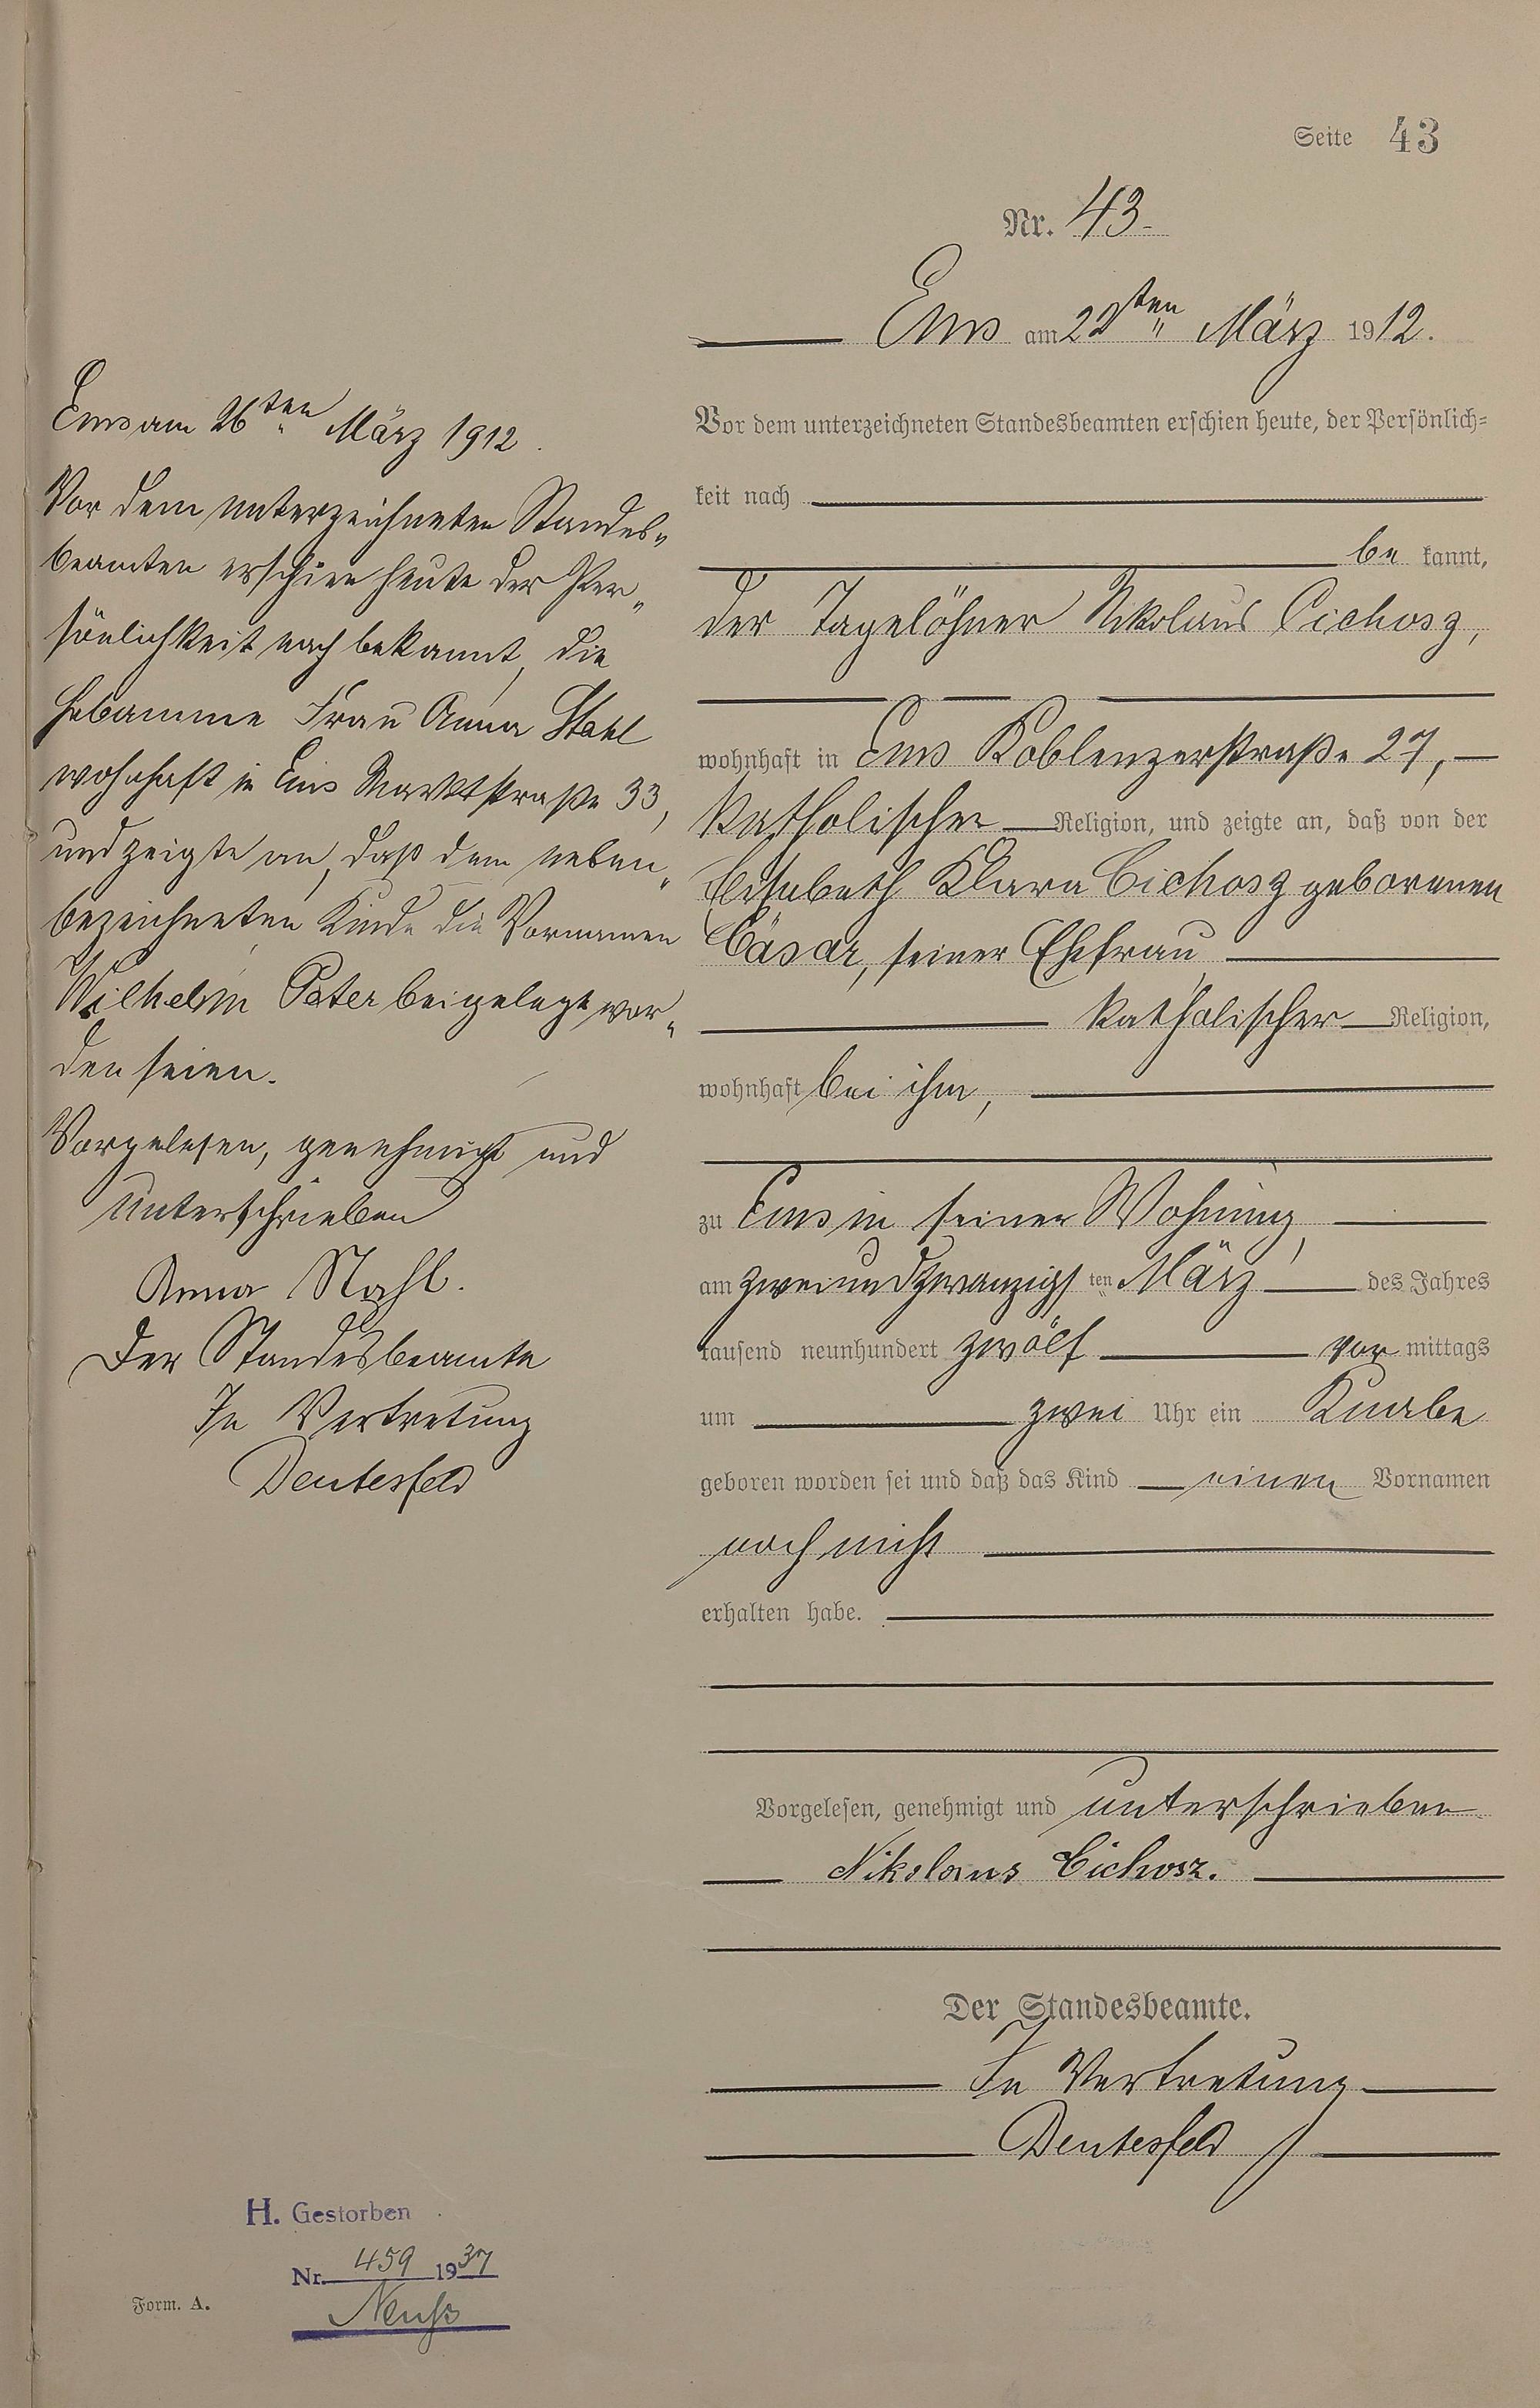 Seite 43
Nr. 43.
Ems am 22ten März 1912.
Vor dem unterzeichneten Standesbeamten erschien heute, der Persönlich=
keit nach
be kannt,
der Tagelöhner Nikolaus Cichosz,
wohnhaft in Ems Koblenzerstraße 27,
katholischer Religion, und zeigte an, daß von der
Elisabeth Klara Cichosz geborenen
Cäsar, seiner Ehefrau
katholischer Religion,
wohnhaft bei ihm,
zu Ems in seiner Wohnung,
am zweiundzwanzigsten März des Jahres
tausend neunhundert zwölf vor mittags
um zwei Uhr ein Knabe
geboren worden sei und daß das Kind einen Vornamen
noch nicht
erhalten habe.
Vorgelesen, genehmigt und unterschrieben
Nikolaus Cichosz.
Der Standesbeamte.
In Vertretung
Deutesfeld
Ems am 26ten März 1912.
Vor dem unterzeichneten Standes„
beamten erschien heute der Per„
sönlichkeit nach bekannt, die
Hebamme Frau Anna Stahl
wohnhaft in Ems Marktstraße 33,
und zeigte an, daß dem neben„
bezeichneten Kinde die Vornamen
Wilhelm Peter beigelegt wor„
den seien.
Vorgelesen, genehmigt und
unterschrieben
Anna Stahl.
Der Standesbeamte
In Vertretung
Deutesfeld
H. Gestorben
Nr. 459 1937
Neuß
Form. A.